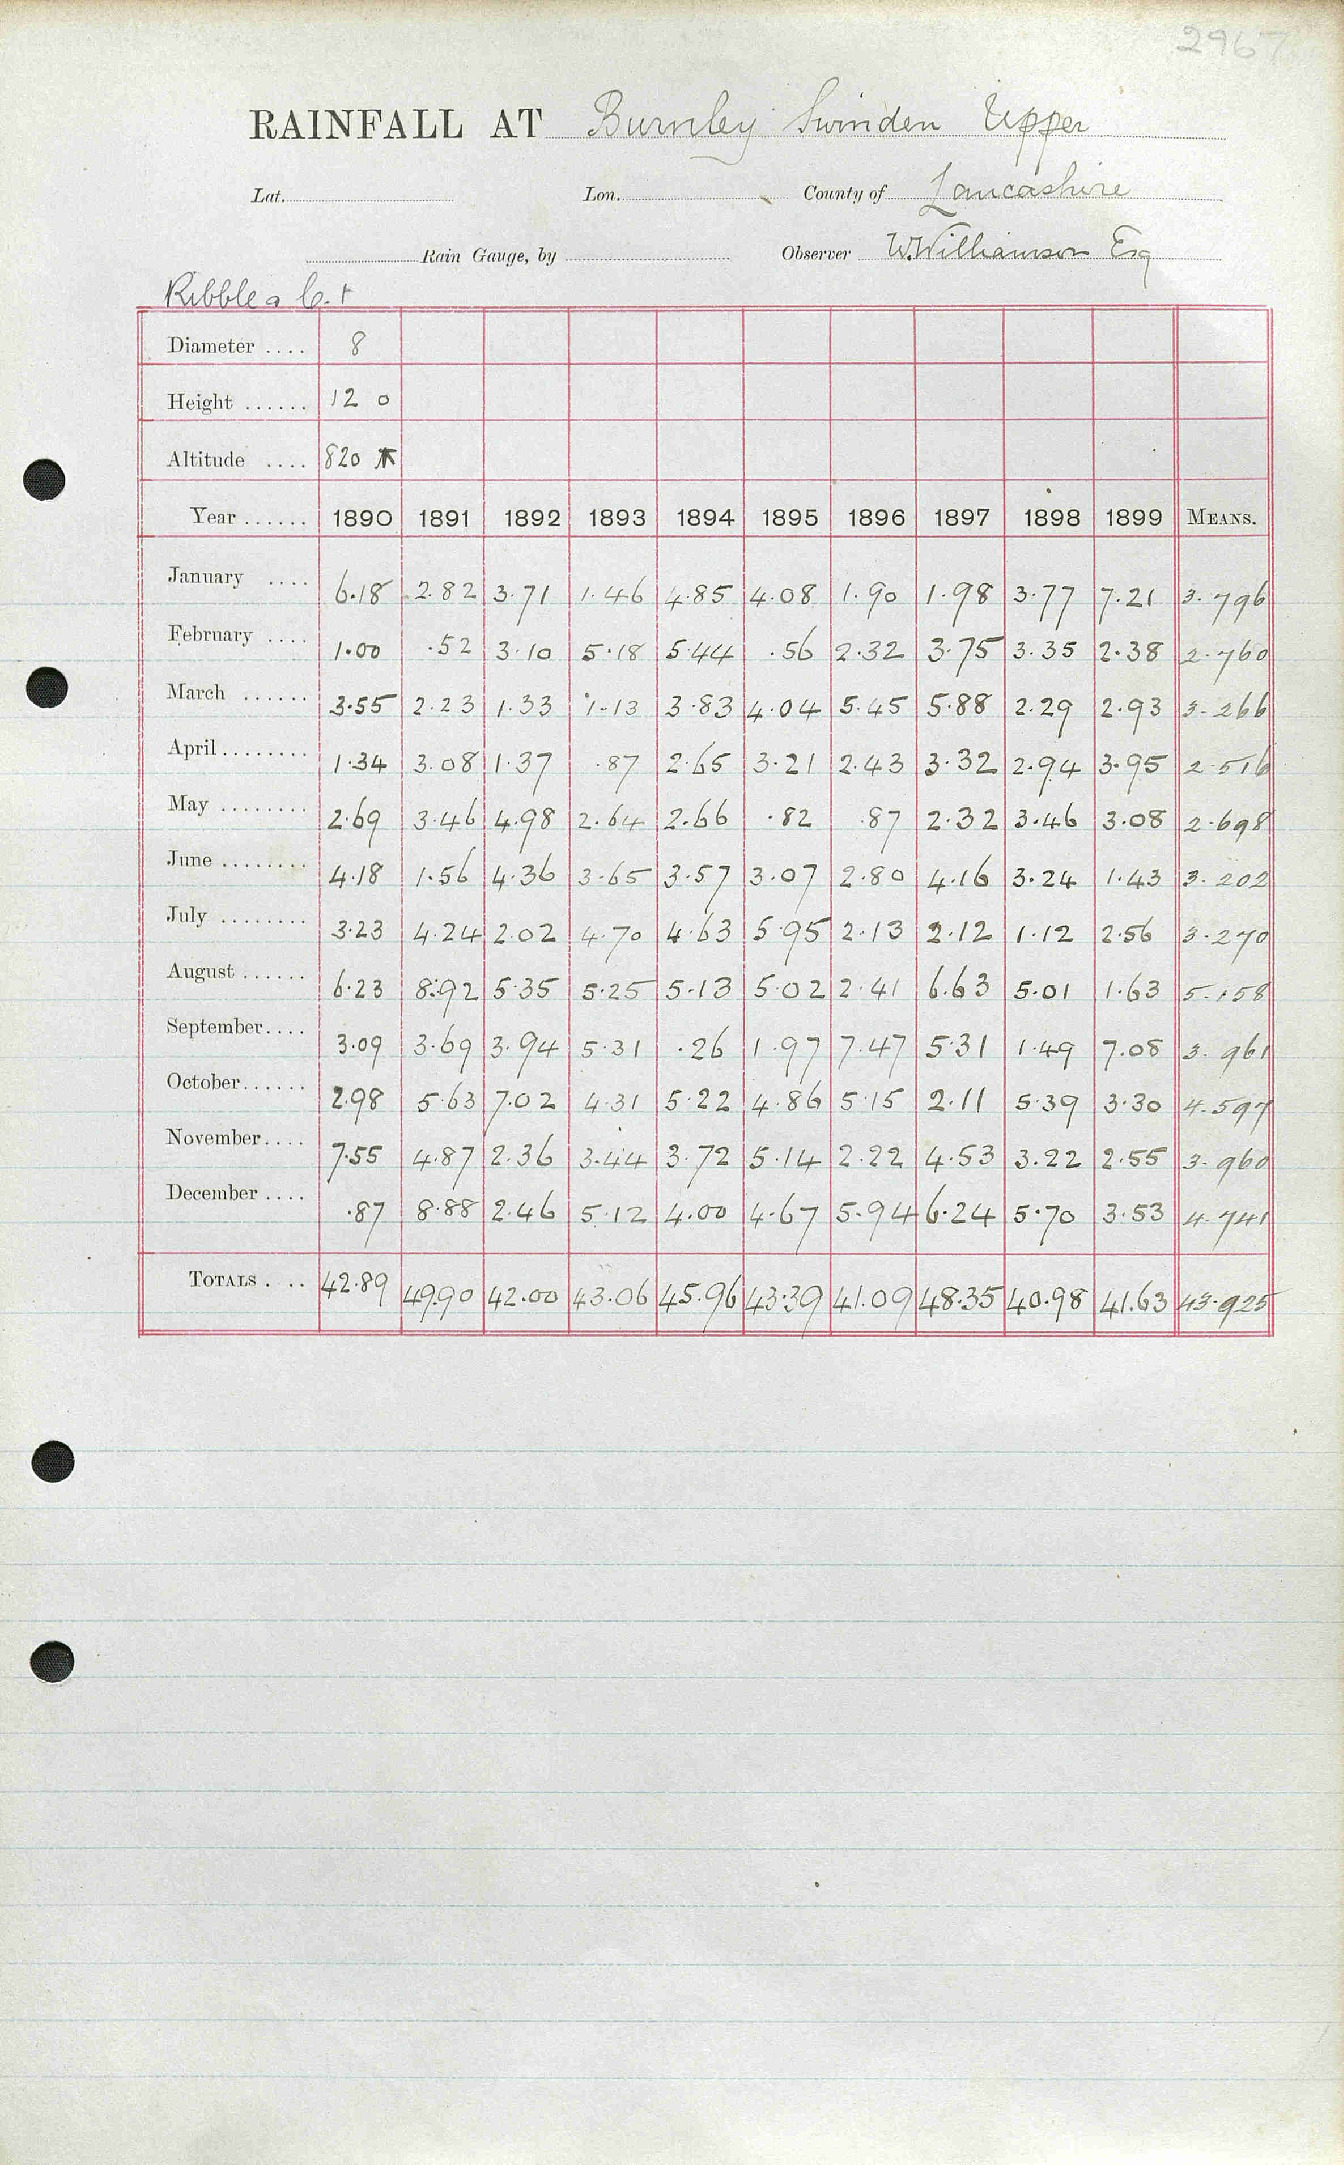 2967
RAINFALL AT Burnley Swinden Upper
Lat. Lon. County of Lancashire
Rain Gauge, by Observer W. Williamson Esq
Ribble
Diameter .... 8
Height ...... 12 0
Altitude .... 820
Year ...... 1890 1891 1892 1893 1894 1895 1896 1897 1898 1899 MEANS.
January .... 6.18 2.82 3.71 1.46 4.85 4.08 1.90 1.98 3.77 7.21 3.796
February .... 1.00 .52 3.10 5.18 5.44 .56 2.32 3.75 3.35 2.38 2.760
March ...... 3.55 2.23 1.33 1.13 3.83 4.04 5.45 5.88 2.29 2.93 3.266
April ........ 1.34 3.08 1.37 .87 2.65 3.21 2.43 3.32 2.94 3.95 2.516
May ........ 2.69 3.46 4.98 2.64 2.66 .82 .87 2.32 3.46 3.08 2.698
June ........ 4.18 1.56 4.36 3.65 3.57 3.07 2.80 4.16 3.24 1.43 3.202
July ........ 3.23 4.24 2.02 4.70 4.63 5.95 2.13 2.12 1.12 2.56 3.270
August ...... 6.23 8.92 5.35 5.25 5.13 5.02 2.41 6.63 5.01 1.63 5.158
September .... 3.09 3.69 3.94 5.31 .26 1.97 7.47 5.31 1.49 7.08 3.961
October ...... 2.98 5.63 7.02 4.31 5.22 4.86 5.15 2.11 5.39 3.30 4.597
November .... 7.55 4.87 2.36 3.44 3.72 5.14 2.22 4.53 3.22 2.55 3.960
December .... .87 8.88 2.46 5.12 4.00 4.67 5.94 6.24 5.70 3.53 4.741
TOTALS . .. 42.89 49.90 42.00 43.06 45.96 43.39 41.09 48.35 40.98 41.63 43.925